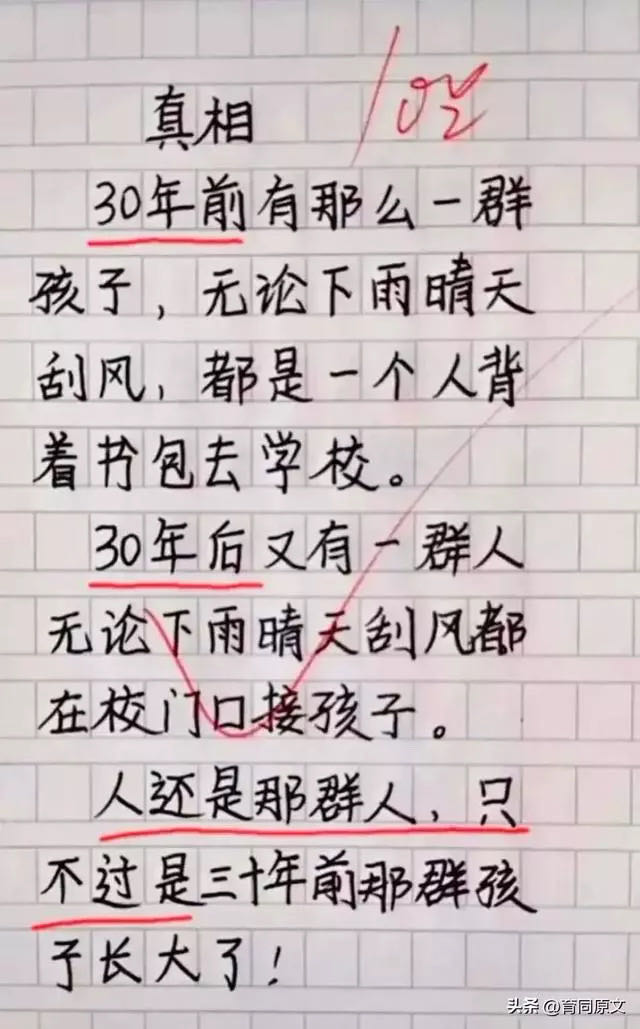 真相
30年前有那么一群
孩子，无论下雨晴天
刮风，都是一个人背
着书包去学校。
30年后又有一群人
无论下雨晴天刮风都
在校门口接孩子。
人还是那群人，只
不过是三十年前那群孩
子长大了！
头条 @育同原文